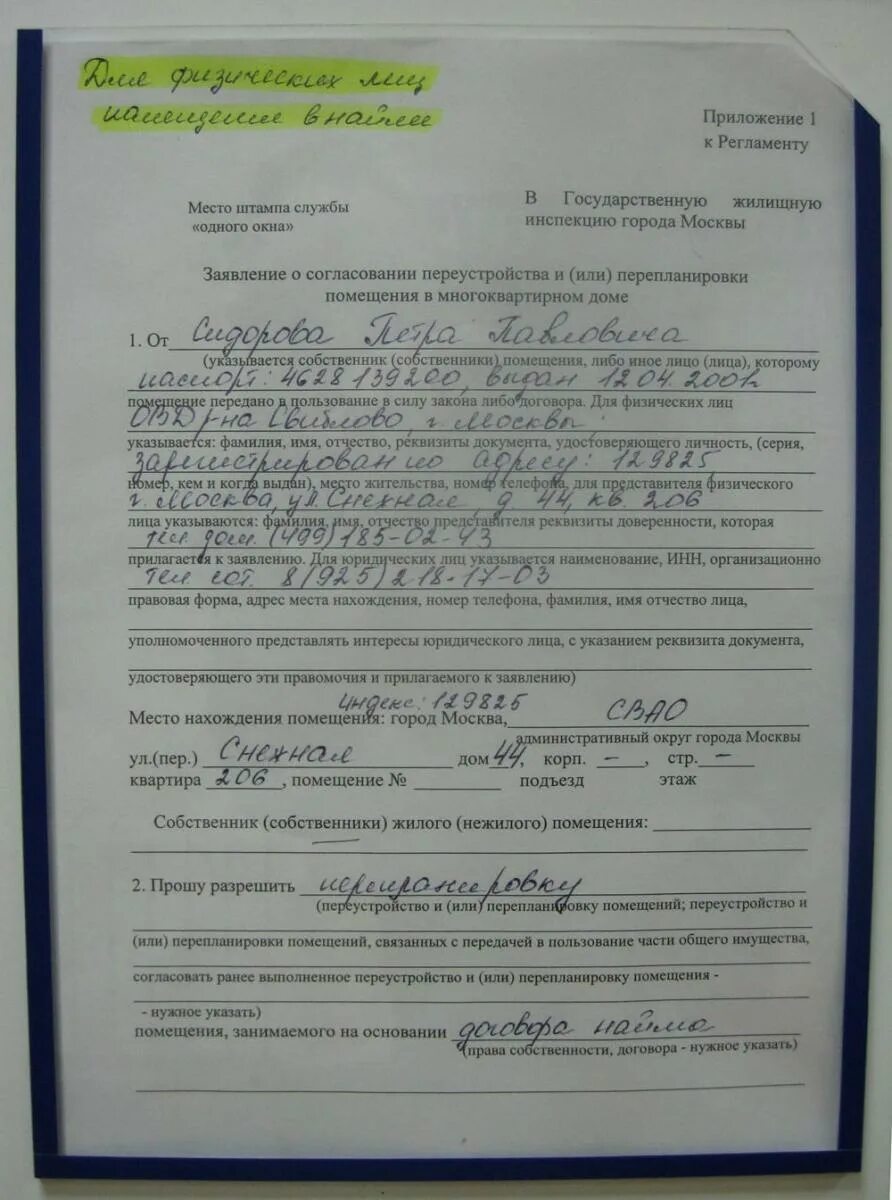 Для физических лиц
помещение в найме
Приложение 1
к Регламенту
Место штампа службы
«одного окна»
В Государственную жилищную
инспекцию города Москвы
Заявление о согласовании переустройства и (или) перепланировки
помещения в многоквартирном доме
1. От Сидорова Петра Павловича
(указывается собственник (собственники) помещения, либо иное лицо (лица), которому
паспорт: 4628 139200, выдан 12.04.2001г.
помещение передано в пользование в силу закона либо договора. Для физических лиц
ОВД р-на Свиблово, г. Москвы;
указывается: фамилия, имя, отчество, реквизиты документа, удостоверяющего личность, (серия,
зарегистрирован по адресу: 129825
номер, кем и когда выдан), место жительства, номер телефона, для представителя физического
г. Москва, ул. Снежная, д. 44, кв. 206
лица указываются: фамилия, имя, отчество представителя реквизиты доверенности, которая
тел. дом. (499) 185-02-43
прилагается к заявлению. Для юридических лиц указывается наименование, ИНН, организационно
тел. сот. 8(925) 218-17-03
правовая форма, адрес места нахождения, номер телефона, фамилия, имя отчество лица,
уполномоченного представлять интересы юридического лица, с указанием реквизита документа,
удостоверяющего эти правомочия и прилагаемого к заявлению)
индекс: 129825
Место нахождения помещения: город Москва, СВАО
административный округ города Москвы
ул.(пер.) Снежная дом 44, корп. –, стр. –
квартира 206, помещение № подъезд этаж
Собственник (собственники) жилого (нежилого) помещения:
2. Прошу разрешить перепланировку
(переустройство и (или) перепланировку помещений; переустройство и
(или) перепланировки помещений, связанных с передачей в пользование части общего имущества,
согласовать ранее выполненное переустройство и (или) перепланировку помещения -
- нужное указать)
помещения, занимаемого на основании договора найма
(права собственности, договора - нужное указать)